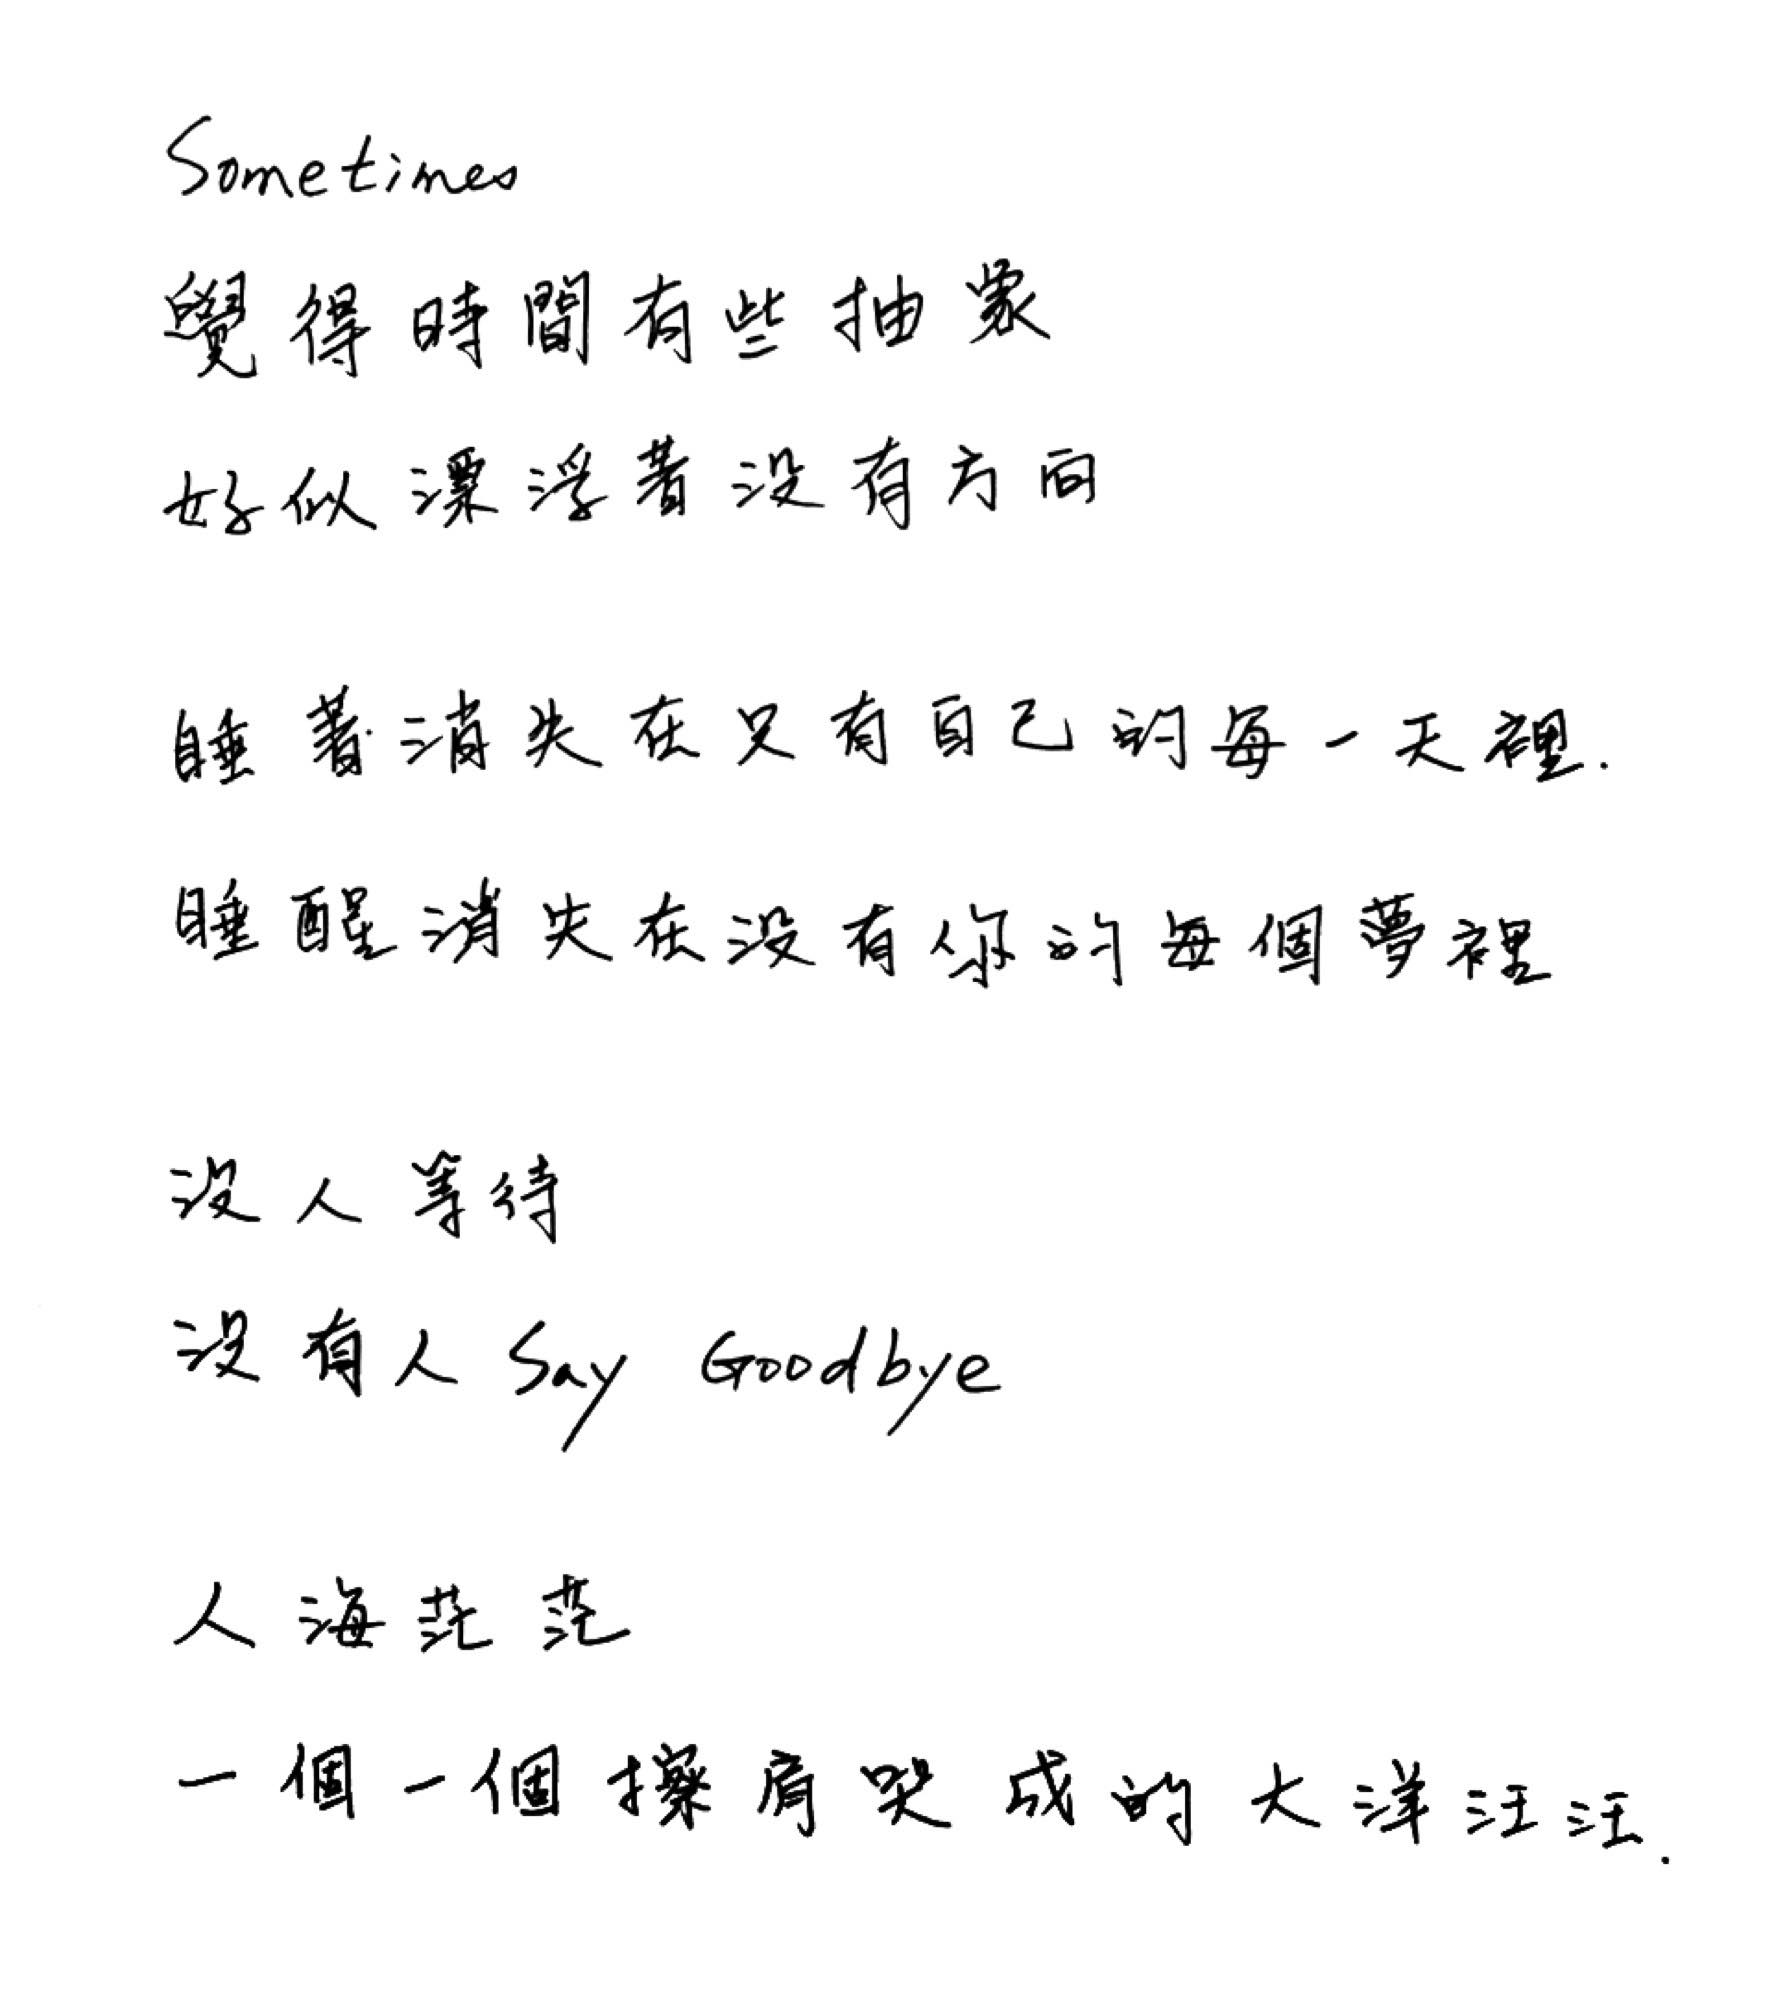 Sometimes
覺得時間有些抽象
好似漂浮著沒有方向
睡著消失在只有自己的每一天裡.
睡醒消失在沒有你的每個夢裡
沒人等待
沒有人 Say Goodbye
人海茫茫
一個一個擦肩哭成的大洋汪汪.